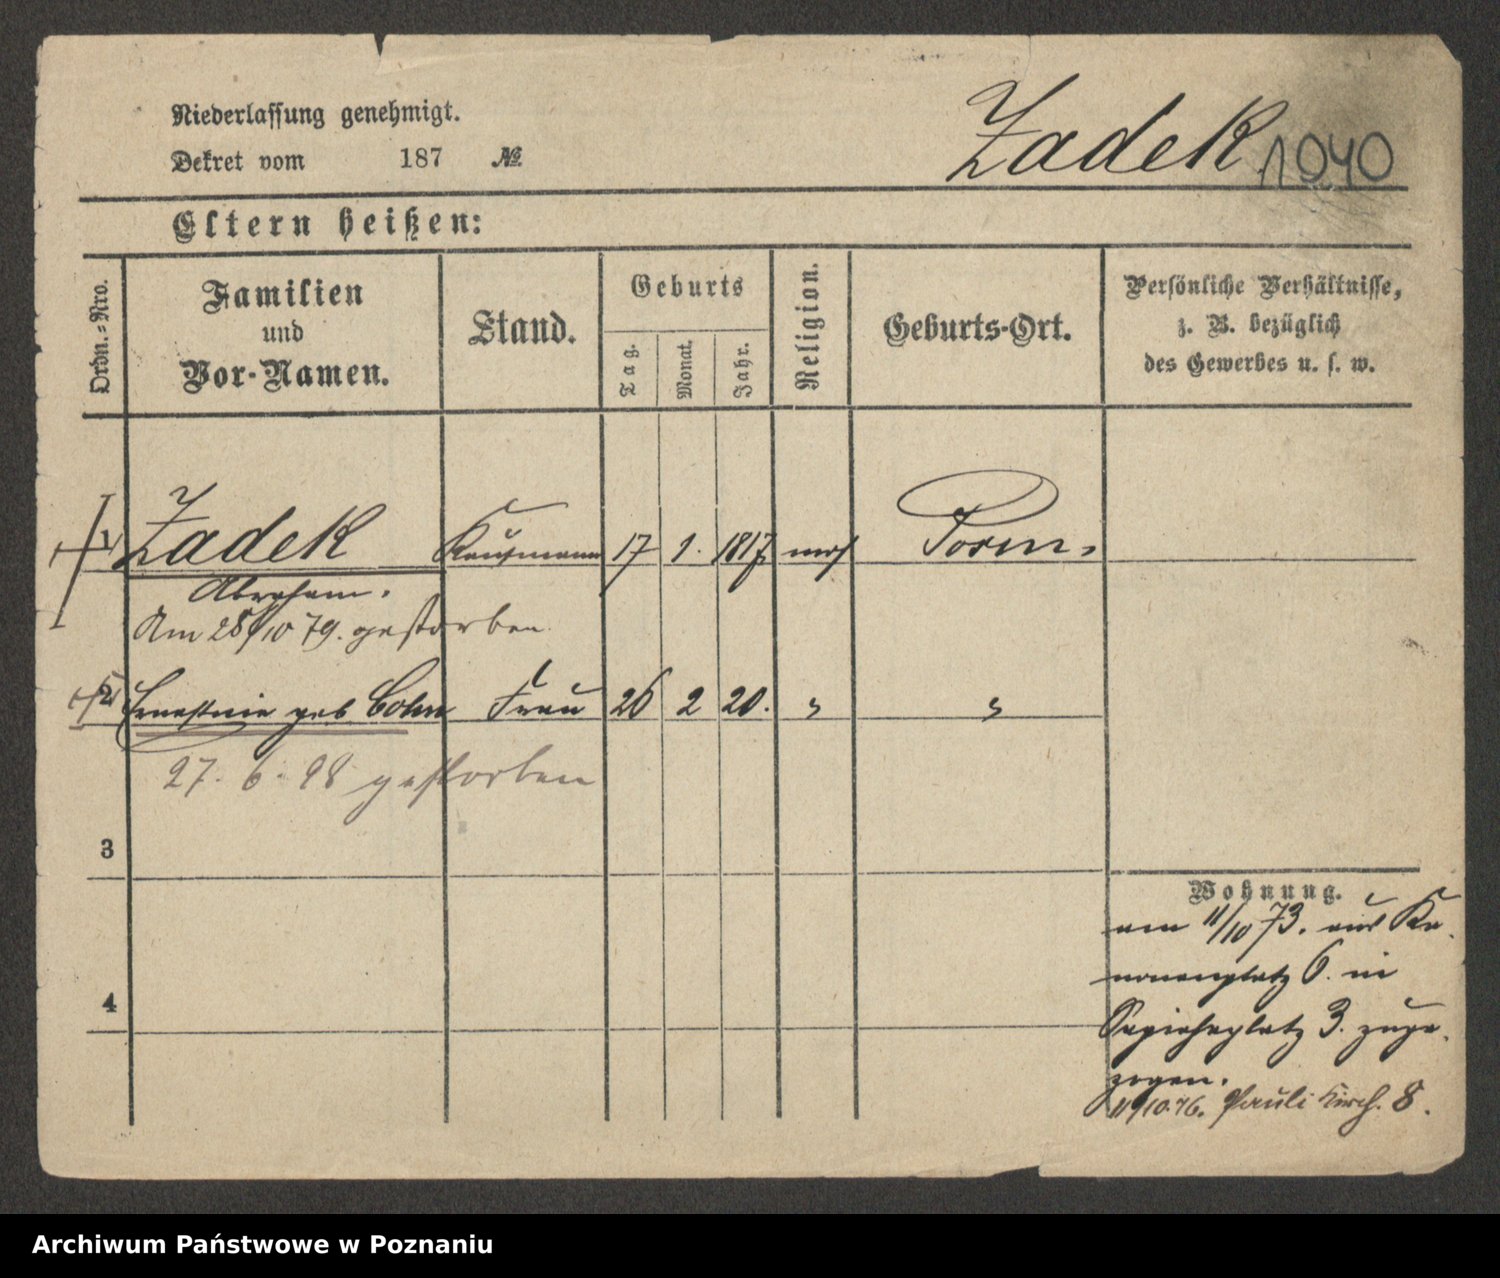 Niederlassung genehmigt.
Dekret vom 187 №
Zadek 1040
Eltern heißen:
Ordn.-Nro.
Familien und Vor-Namen.
Stand.
Geburts
Tag.
Monat.
Jahr.
Religion.
Geburts-Ort.
Persönliche Verhältnisse,
z. B. bezüglich
des Gewerbes u. s. w.
1 Zadek Kaufmann 17 1. 1817 mos Posen.
Abraham.
Am 28/10 79. gestorben
2 Ernestine geb Cohn Frau 26 2 20. " "
27. 6. 98 gestorben
3
4
Wohnung.
am 11/10 73. aus Ka-
nonenplatz 6. in
Sapiehaplatz 3. zuge-
zogen.
11/10.76. Pauli Kirch. 8.
Archiwum Państwowe w Poznaniu